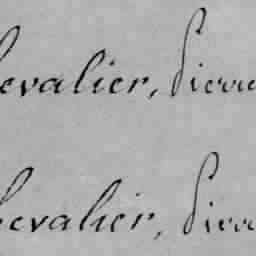 hevalier, Pierre
hevalier, Pierre